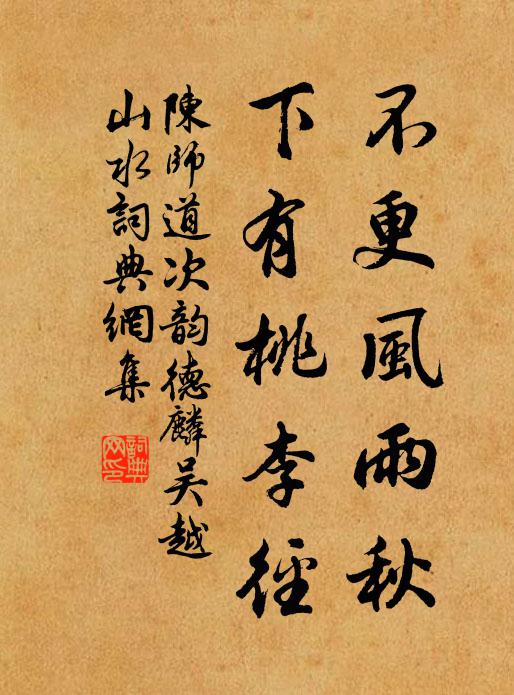 不更風雨秋
下有桃李徑
陳師道次韵德麟吴越
山水詞典網集
詞典
网印